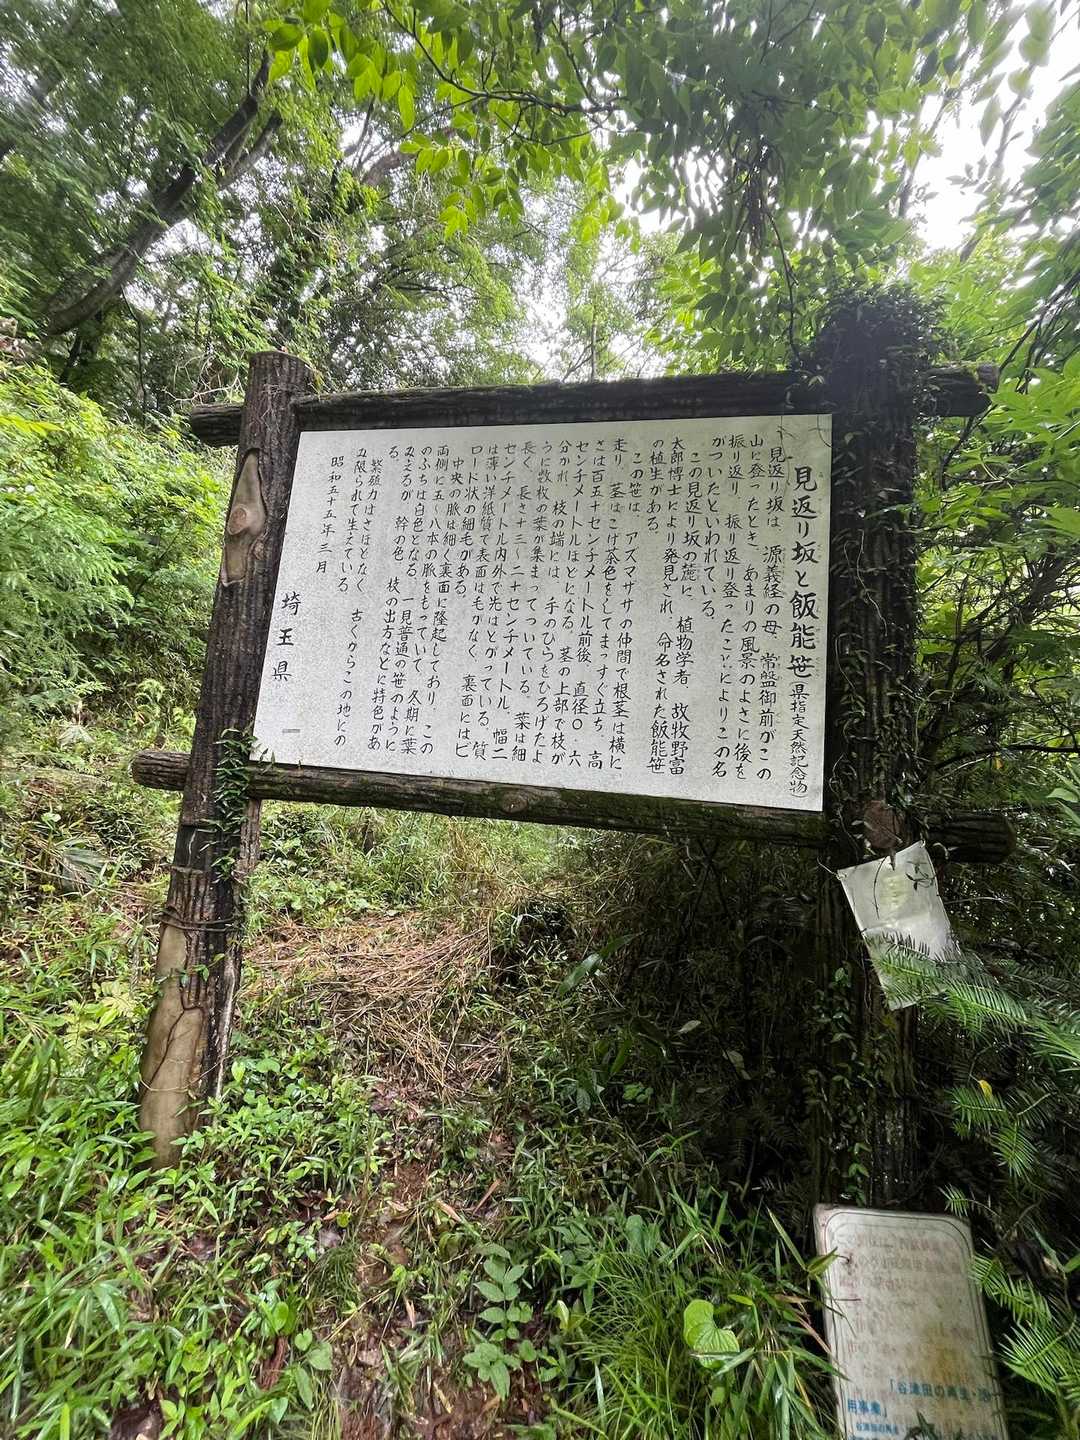 見返り坂と飯能笹(県指定天然記念物)
見返り坂は、源義経の母、常盤御前がこの
山に登ったとき、あまりの風景のよさに後を
振り返り、振り返り登ったことによりこの名
がついたといわれている。
この見返り坂の麓に、植物学者、故牧野富
太郎博士により発見され、命名された飯能笹
の植生がある。
この笹は、アズマザサの仲間で根茎は横に
走り、茎はこげ茶色をしてまっすぐ立ち、高
さは百五十センチメートル前後、直径〇・六
センチメートルほどになる。茎の上部で枝が
分かれ、枝の端には、手のひらをひろげたよ
うに数枚の葉が集まってついている。葉は細
長く、長さ十三~二十センチメートル、幅二
センチメートル内外で先はとがっている。質
は薄い洋紙質で表面は毛がなく、裏面にはビ
ロード状の細毛がある。
中央の脈は細く裏面に隆起しており、この
両側に五~八本の脈をもっていて、冬期に葉
のふちは白色となる。一見普通の笹のように
みえるが、幹の色、枝の出方などに特色があ
る。
繁殖力はさほどなく、古くからこの地にの
み限られて生えている。
昭和五十五年三月
埼玉県
「谷津田の再生・活
用事業」